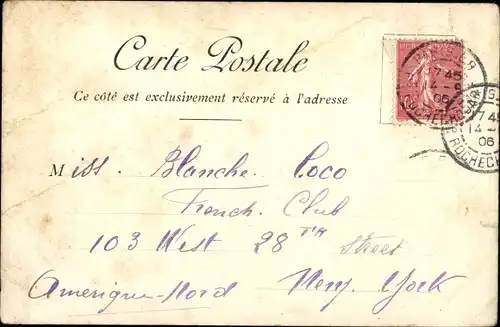 Carte Postale
Ce côté est exclusivement réservé à l'adresse
Miss. Blanche. Coco
French. Club
103 West 28 TH Street
Amerique-Nord New. York
7 45
14 - 8
06
7 45
14
06
ROCHEC